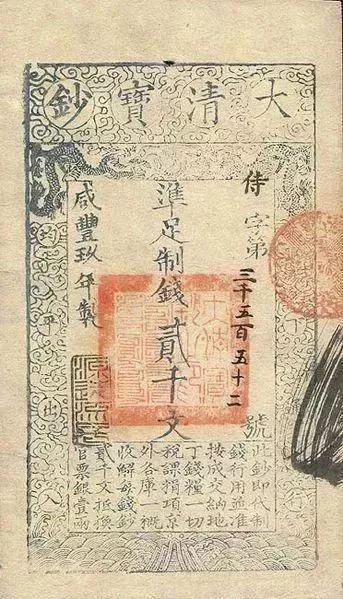 大清寶鈔
侍字第三千五百五十二號
準足制錢貳千文
咸豐玖年製
下行
均平出入
此鈔即代制
錢行用並准
按成交納地
丁錢糧一切
稅課捐項京
外各庫一概
收解每錢鈔
貳千文抵換
官票銀壹兩